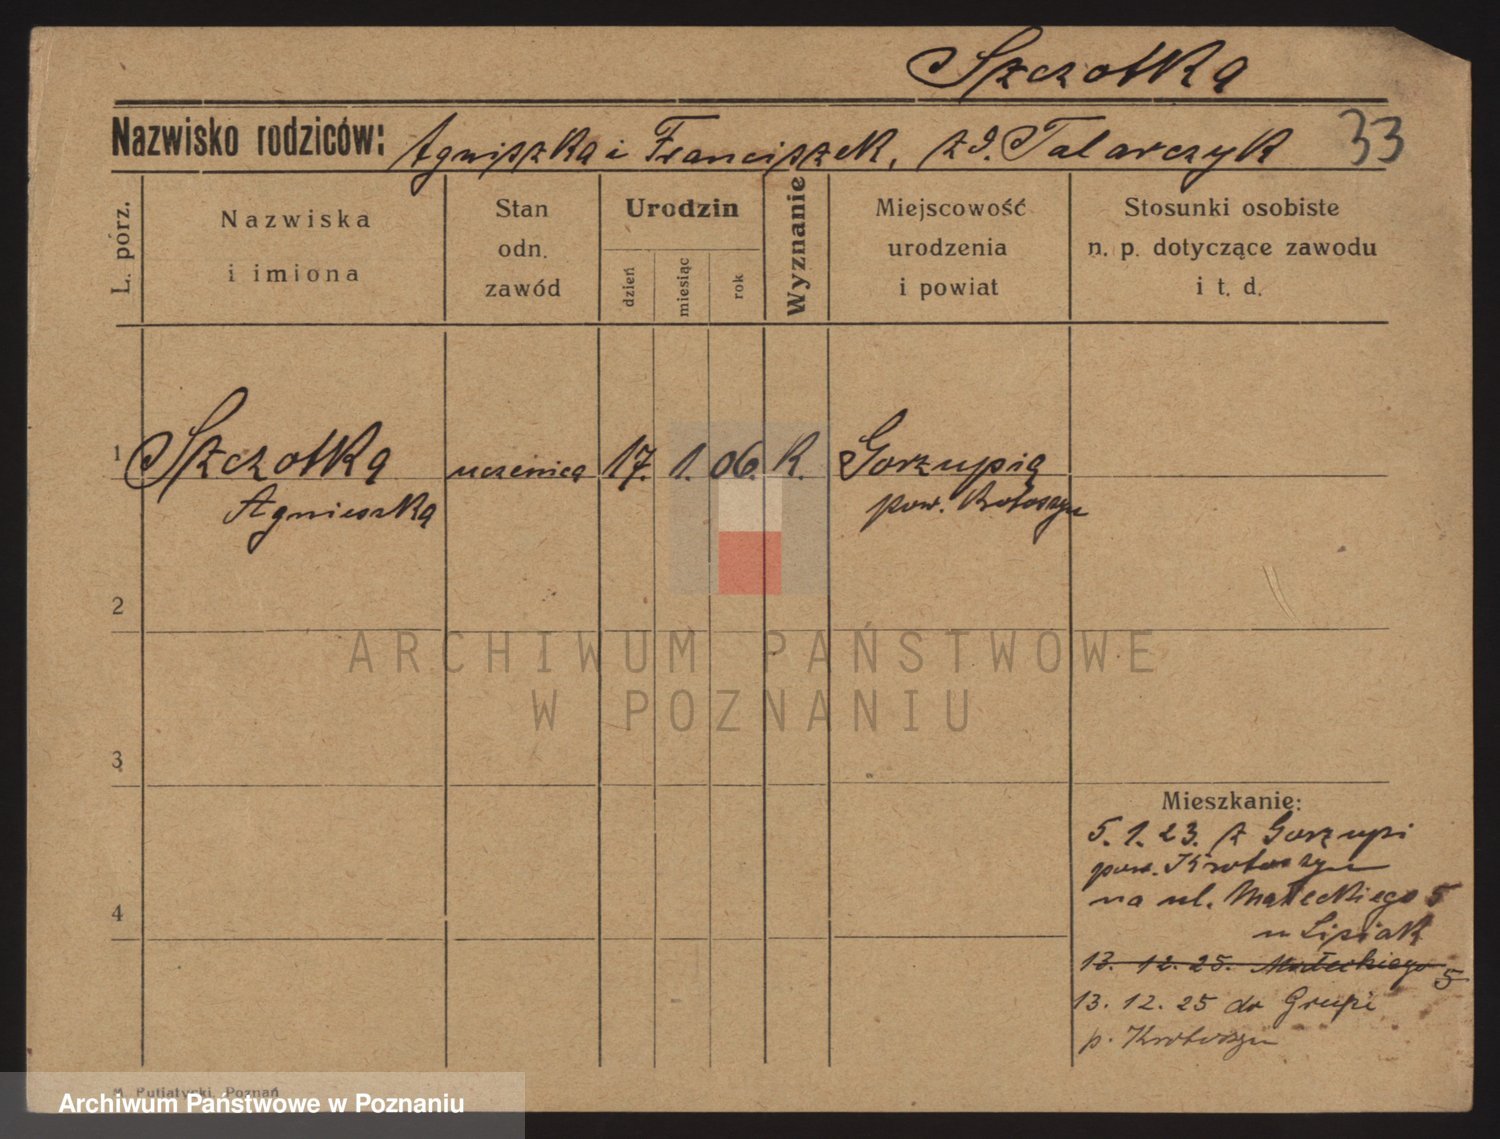 Szczotka
Nazwisko rodziców: Agniszka i Franciszek, zd. Talarczyk 33
L. porz.
Nazwiska
i imiona
Stan
odn.
zawód
Urodzin
dzień
miesiąc
rok
Wyznanie
Miejscowość
urodzenia
i powiat
Stosunki osobiste
n. p. dotyczące zawodu
i t. d.
1 Szczotka uczenica 17. 1. 06. R. Gorzupia
Agnieszka pow. Krotoszyn
2
3
4
Mieszkanie:
5. 1. 23. z Gorzupi
pow. Krotoszyn
na ul. Małeckiego 5
u Lipiak
13. 12. 25. Małeckiego 5
13. 12. 25 do
p. Krotoszyn
M. Putiatycki, Poznań
ARCHIWUM PAŃSTWOWE
W POZNANIU
Archiwum Państwowe w Poznaniu